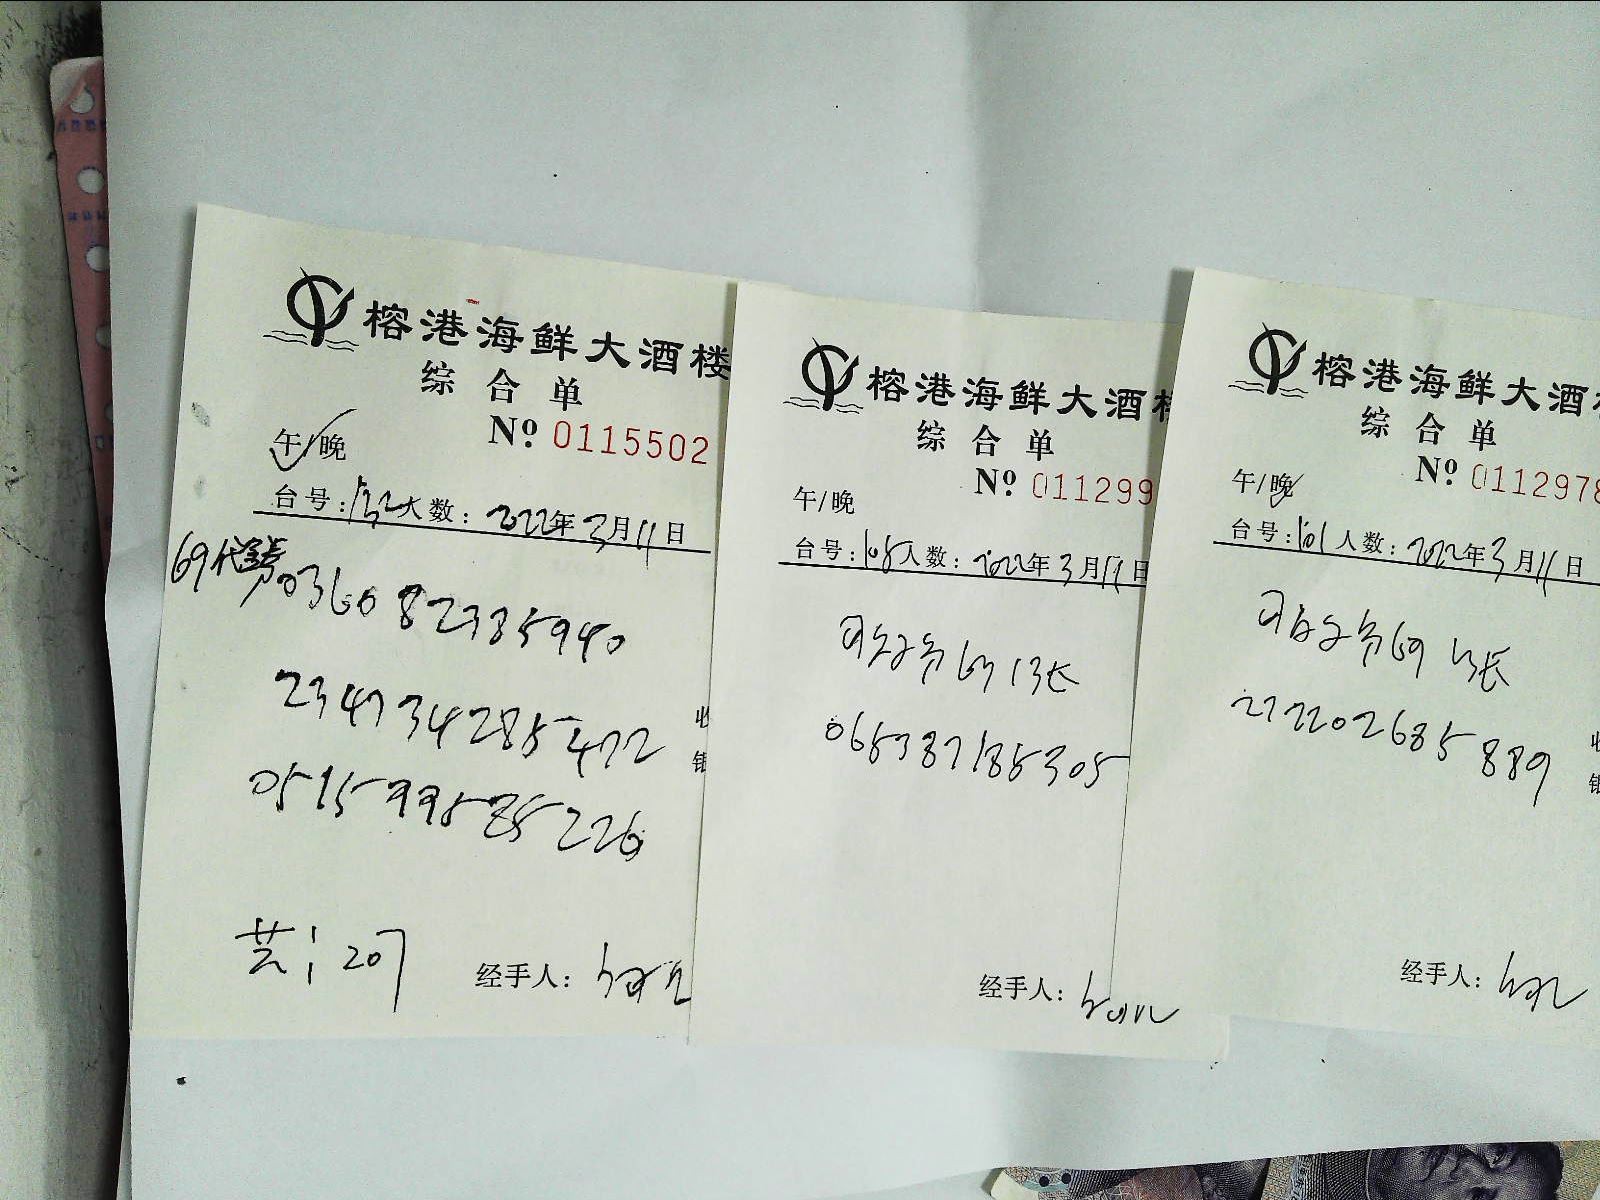 榕港海鲜大酒楼
综合单
Nº 0115502
午/晚
台号:132人数: 2022年3月11日
69代金券
036082385940
234734285472
051599585226
共:207
收
银
经手人:
榕港海鲜大酒
综合单
Nº 011299
午/晚
台号:108人数: 2022年3月11日
69 1张
065387185305
经手人:
榕港海鲜大酒
综合单
Nº 0112978
午/晚
台号:101人数: 2022年3月11日
69 张
272202685889
经手人: